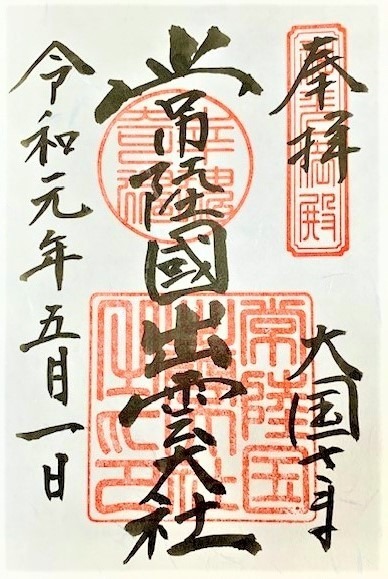 奉拝
大国さま
常陸國出雲大社
令和元年五月一日
常陸国
出雲大社
之印